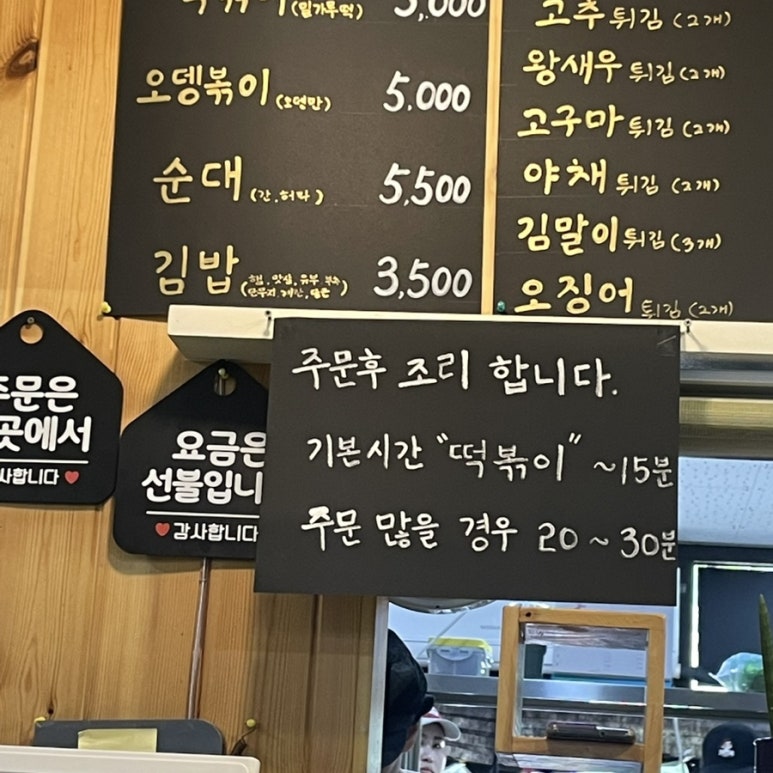 (밀가루떡)
오뎅볶이 (오뎅만) 5,000
순대 (간,허파) 5,500
김밥 3,500
고추 튀김 (2개)
왕새우 튀김 (2개)
고구마 튀김 (2개)
야채 튀김 (2개)
김말이 튀김 (3개)
오징어 튀김 (2개)
주문후 조리 합니다.
기본시간 "떡볶이" ~15분
주문 많을 경우 20~30분
주문은
곳에서
사합니다
요금은
선불입니
감사합니다